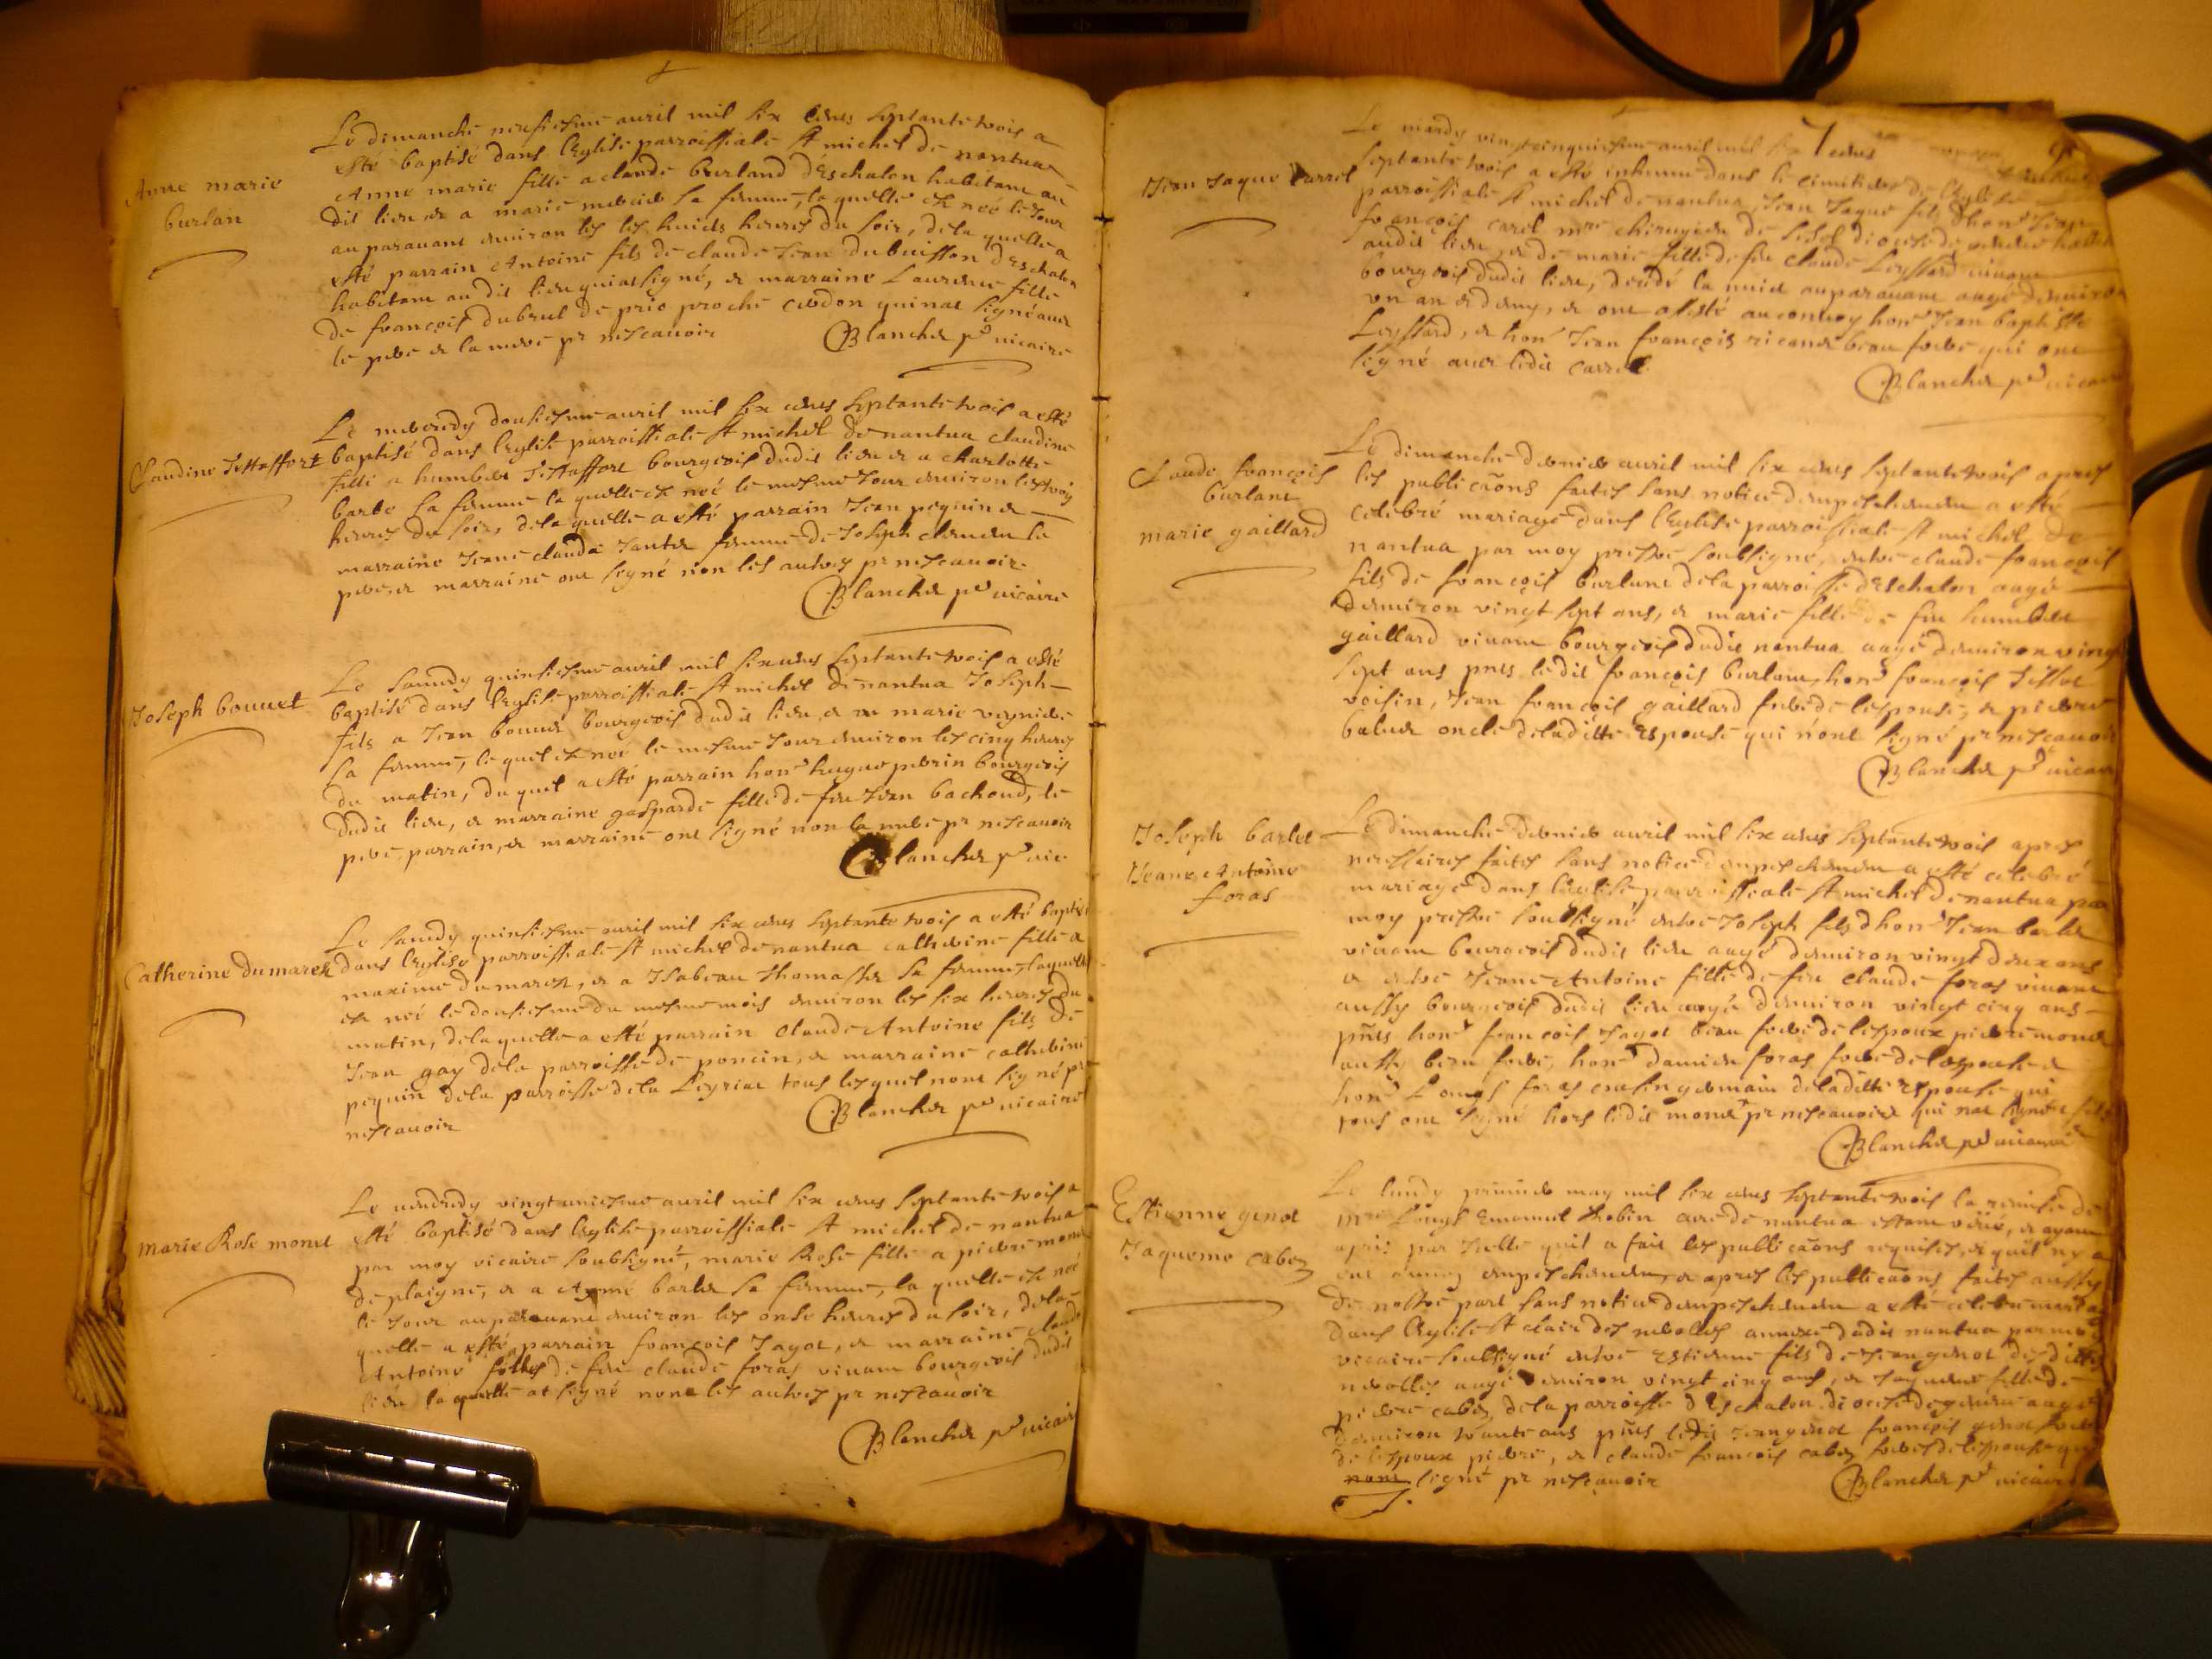 Anne marie
burlan
Le dimanche neufiesme auril mil six cents septante trois a
esté baptisé dans l'Eglise parroissiale St michel de nantua
Anne marie fille a claude burland d'Eschalon habitant au
dit lieu et a marie mercier sa femme, laquelle est neé le Jour
au parauant enuiron les les huicts heures du soir, de la quelle a
esté parrain Antoine fils de claude Jean du buisson d'Eschalon
habitant au dit lieu qui at signé, et marraine Laurence fille
de françois dubrul de prio proche cerdon qui nat signé auec
le pere et la mere pr nescauoir
Blanchet pbr uicaire
Claudine Tettaffort
Le mercredy dousiesme auril mil six cents septante trois a esté
baptisé dans l'Eglise parroissiale St michel de nantua claudine
fille a humbert Tettaffort bourgeois dudit lieu et a charlotte
barbe sa femme la quelle est neé le mesme Jour enuiron les trois
heures du soir, de la quelle a esté parrain Jean pequin et
marraine Jeane claude Jantet femme de Joseph clement le
pere et marraine ont signé non les autres pr nescauoir
Blanchet pbr uicaire
Joseph bouuet
Le samedy quinsiesme auril mil six cents septante trois a esté
baptisé dans l'Eglise parroissiale St michel de nantua Joseph
fils a Jean bouuet bourgeois dudit lieu, et a marie
sa femme, le quel est neé le mesme Jour enuiron les cinq heures
du matin, du quel a esté parrain hon. hugue perrin bourgeois
dudit lieu, et marraine gasparde fille de feu Jean bachoud, le
pere, parrain, et marraine ont signé non la mere pr nescauoir
Blanchet pbr uic.
Catherine Dumarest
Le samedy quinsiesme auril mil six cents septante trois a esté baptisé
dans l'Eglise parroissiale St michel de nantua catherine fille a
maxime dumarest, et a Isabeau Thomasset sa femme, laquelle
est neé le dousiesme du mesme mois enuiron les six heures du
matin, de la quelle a esté parrain claude Antoine fils de
Jean gay de la parroisse de poncin, et marraine catherine
pequin de la parroisse de la Leyriat tous lesquel nont signé pr
nescauoir
Blanchet pbr uicaire
marie Rose monet
Le uendredy vingt uniesme auril mil six cents septante trois a
esté baptisé dans l'Eglise parroissiale St michel de nantua
par moy vicaire soubsigné, marie Rose fille a pierre monet
de plaigne, et a Anne barlet sa femme, la quelle est neé
le Jour auparauant enuiron les onse heures du soir, de la
quelle a esté parrain françois Jagot, et marraine claude
Antoine fille de feu claude foras viuant bourgeois dudit
lieu la quelle at signé non les autres pr nescauoir
Blanchet pbr uicaire
Jean Jaque Carrel
Le mardy vingt cinquiesme auril mil six cents
septante trois a esté inhumé dans le cimitiere de l'Eglise
parroissiale St michel de nantua, Jean Jaque fils d'hon. Jean
françois carel mre chirurgien de
audit lieu, et de marie fille de feu claude Leyssard uiuant
bourgeois dudit lieu, decedé la nuict auparauant aagé denuiron
un an et demy, et ont assisté au conuoy hon. Jean baptiste
Leyssard, et hon. Jean françois ricand beau frere qui ont
signé auec ledit carrel
Blanchet pbr uicaire
Claude françois
burlant
marie gaillard
Le dimanche dernier auril mil six cents septante trois apres
les publicaons faites sans notice dempeschement a esté
celebré mariage dans l'Eglise parroissiale St michel de
nantua par moy prestre soubsigné, entre claude françois
fils de françois burlant de la parroisse d'Eschalon aagé
denuiron vingt sept ans, et marie fille de feu humbert
gaillard viuant bourgeois dudit nantua aagé denuiron vingt
sept ans pnts ledit françois burlant, hon. françois Tissot
voisin, Jean françois gaillard frere de lespouse, et pierre
oncle de ladite Espouse qui n'ont signé pr nescauoir
Blanchet pbr uicaire
Joseph barlet
Jeane Antoine
foras
Le dimanche dernier auril mil six cents septante trois apres
necessaires faites sans notice dempeschement a esté celebré
mariage dans l'Eglise parroissiale St michel de nantua par
moy prestre soubsigné entre Joseph fils d'hon. Jean barlet
viuant bourgeois dudit lieu aagé denuiron vingt deux ans
et entre Jeane Antoine fille de feu claude foras viuant
aussy bourgeois dudit lieu aagé denuiron vingt cinq ans
pnts hon. françois Jagot beau frere de lespoux pierre monet
aussy beau frere, hon. damien foras frere de lespouse et
hon. Louys foras cousin germain de ladite Espouse qui
tous ont signé hors ledit monet pr nescauoir qui nat signé
Blanchet pbr uicaire
Estienne genot
Jaqueme caboz
Le lundy premier may mil six cents septante trois la remise de
mre Louys Emanuel Robin curé de nantua estant veüe, et ayant
apris par Icelle quil a fait les publicaons requises, et quil ny a
eut aucun empeschement, et apres les publicaons faites aussy
de nostre part sans notice dempeschement a esté celebré mariage
dans l'Eglise St clair des nerolles annexe dudit nantua par moy
vicaire soubsigné entre Estienne fils de Jean genot desdittes
nerolles aagé denuiron vingt cinq ans, et Jaqueme fille de
pierre caboz de la parroisse d'Eschalon diocese de geneue aagé
denuiron trante ans pnts ledit Jean genot françois genot frere
de lespoux pierre, et claude françois caboz freres de lespouse qui
nont signé pr nescauoir
Blanchet pbr uicaire